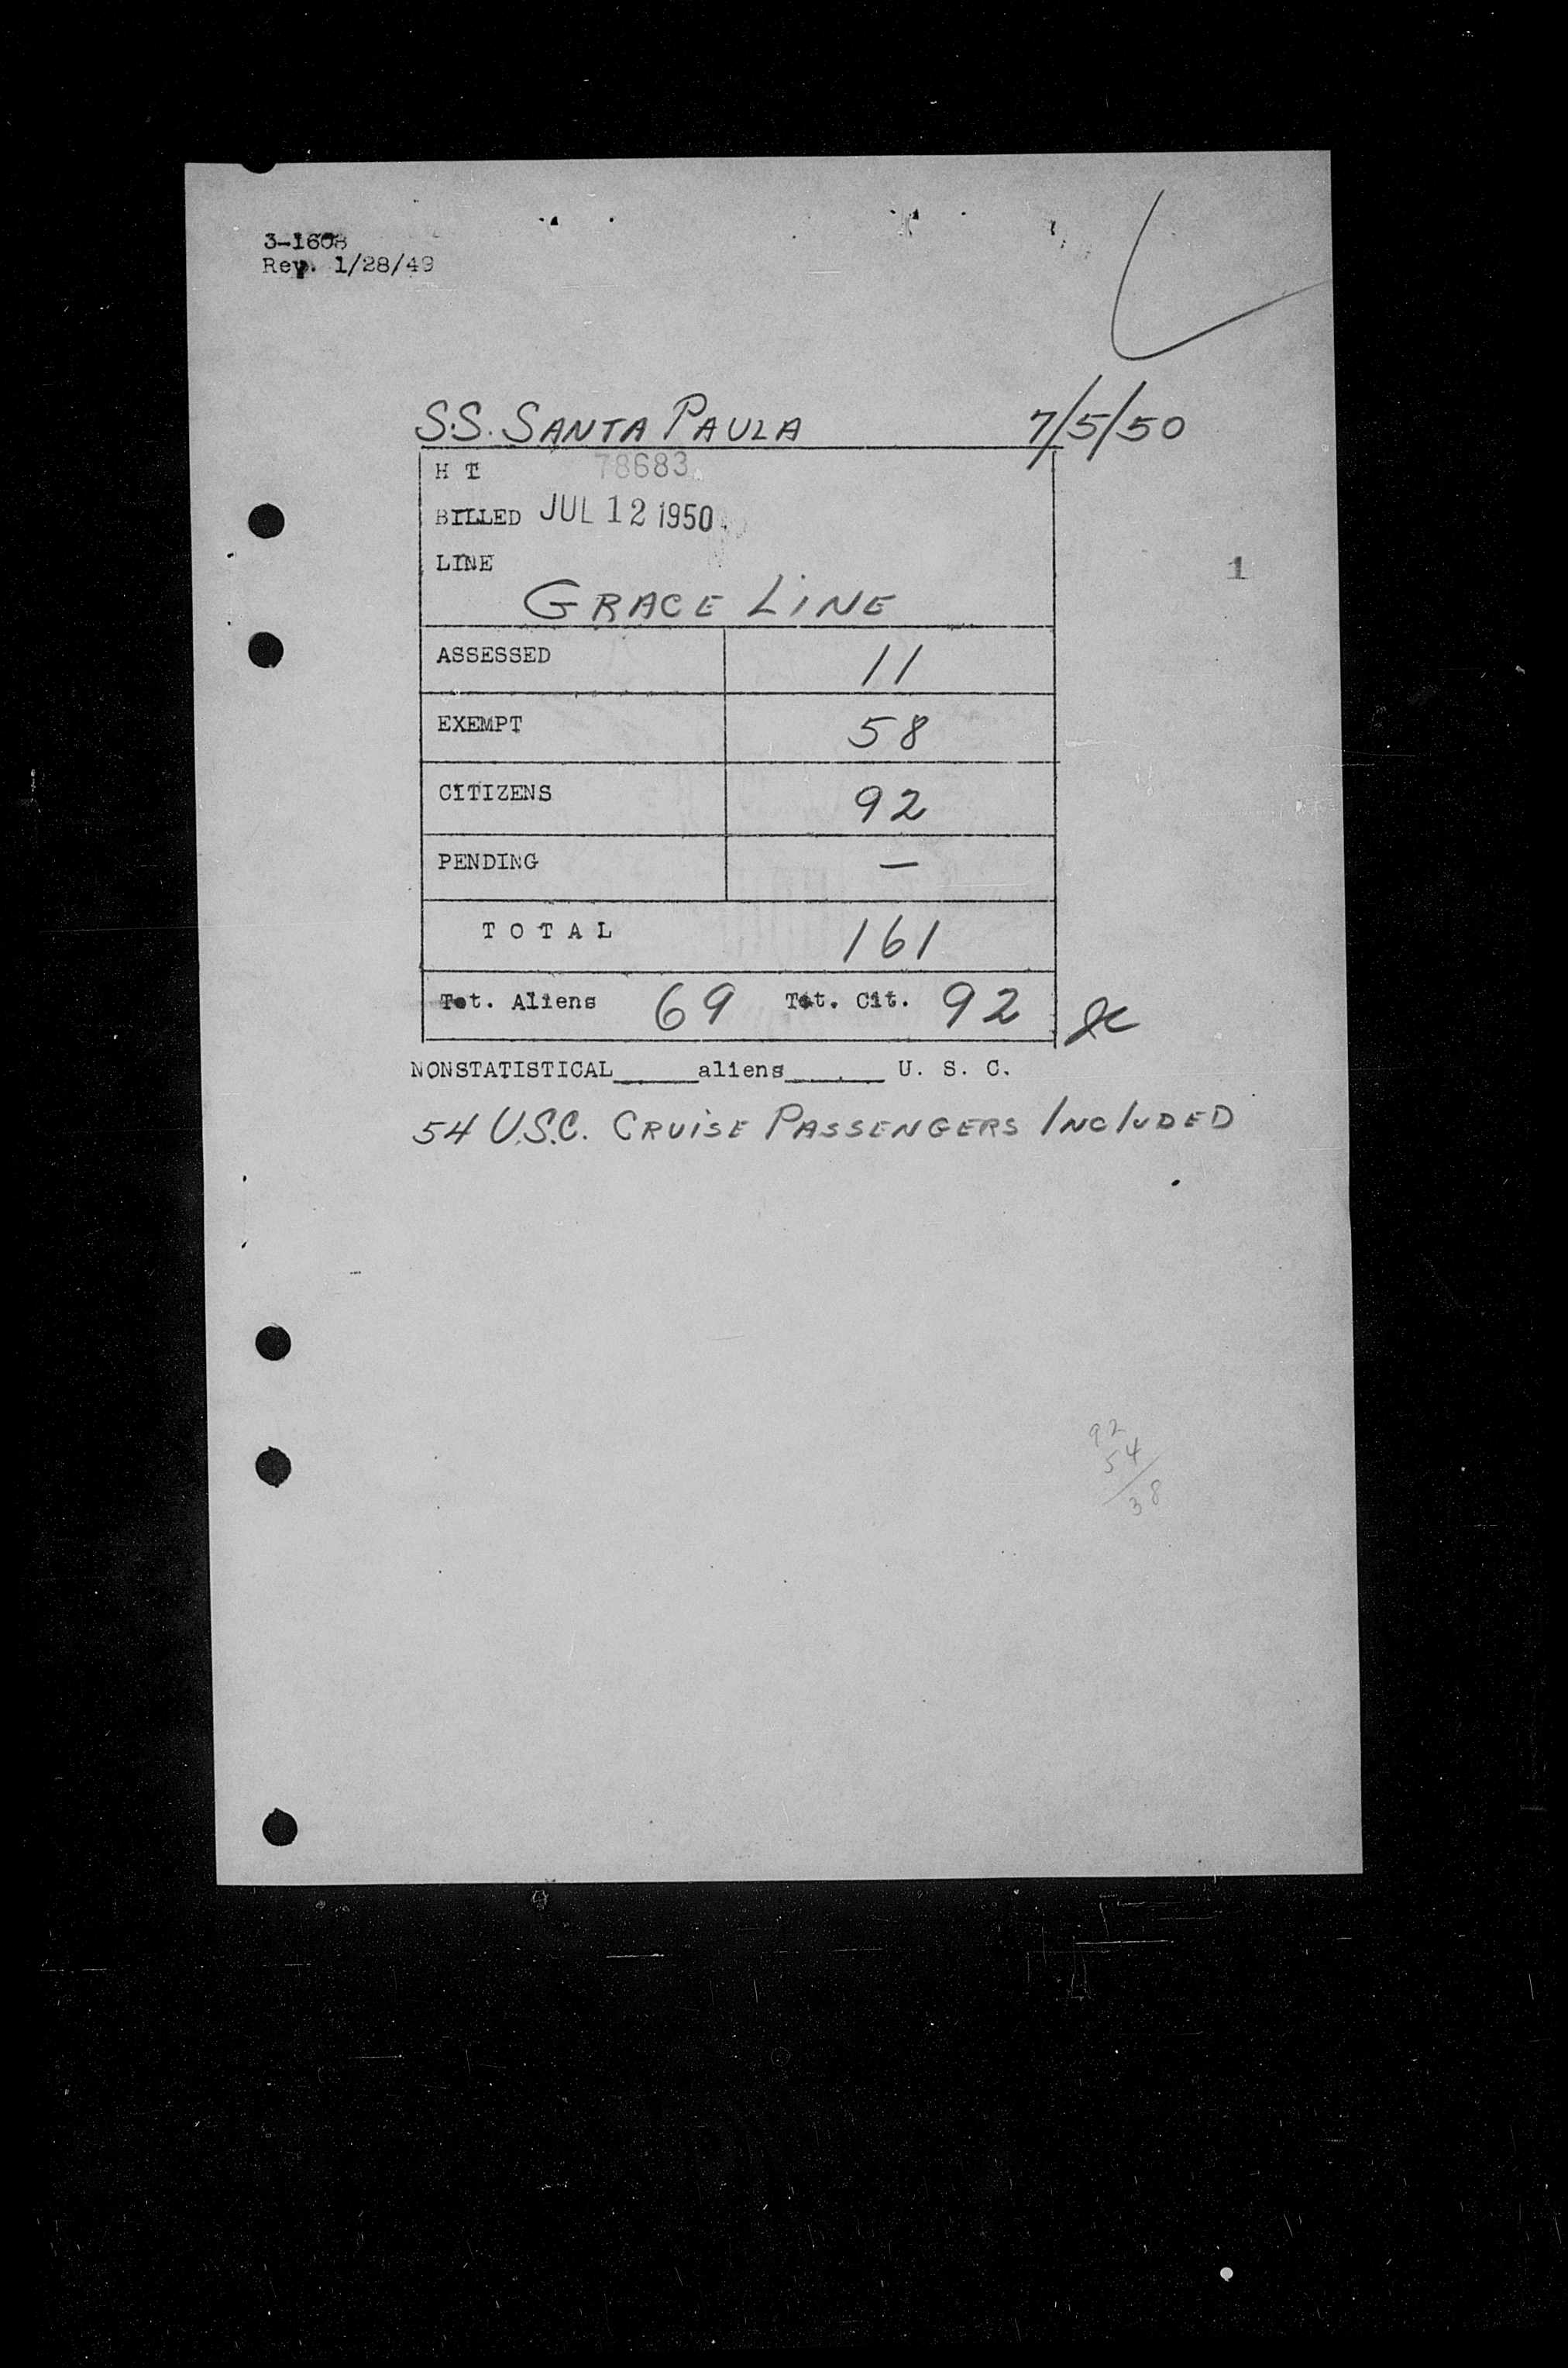 3-1608
Rev. 1/28/49
S.S. SANTA PAULA 7/5/50
H T 78683
BILLED JUL 12 1950
LINE
1
GRACE LINE
ASSESSED 11
EXEMPT 58
CITIZENS 92
PENDING —
T O T A L 161
Tot. Aliens 69 Tot. Cit. 92
NONSTATISTICAL_____aliens______ U. S. C.
54 U.S.C. CRUISE PASSENGERS INCLUDED
92
54
38